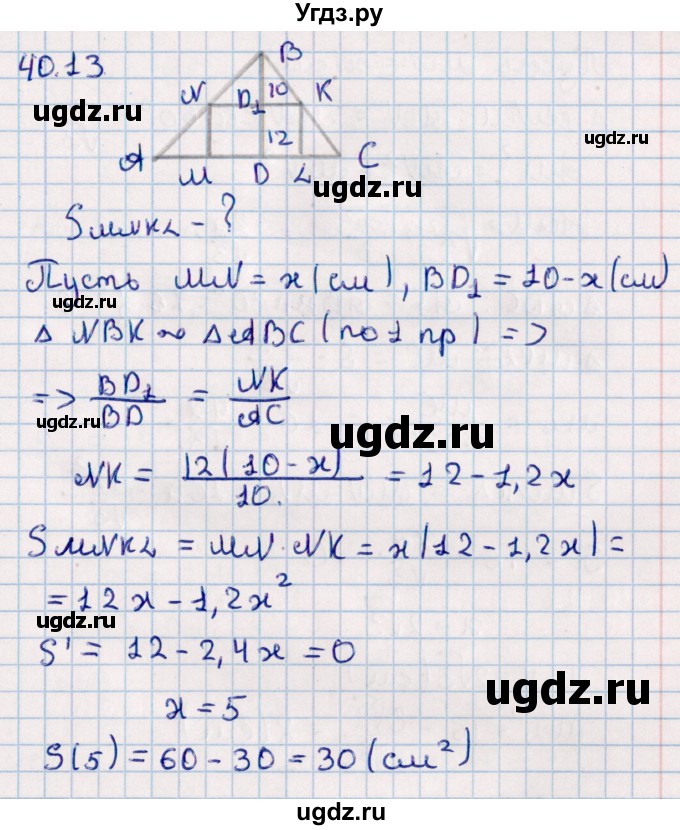 Угдз.ру
40.13
B
N D₁ 10 K
12
A M D L C
ugdz.ru
ugdz.ru
S MNKL - ?
Пусть MN = x (см), BD₁ = 10 - x (см)
ugdz.ru
△ NBK ~ △ ABC (по 1 пр) =>
=> BD₁/BD = NK/AC
ugdz.ru
ugdz.ru
NK = 12(10 - x)/10. = 12 - 1,2x
S MNKL = MN · NK = x(12 - 1,2x) =
= 12x - 1,2x²
ugdz.ru
S' = 12 - 2,4x = 0
ugdz.ru
x = 5
S(5) = 60 - 30 = 30 (см²)
ugdz.ru